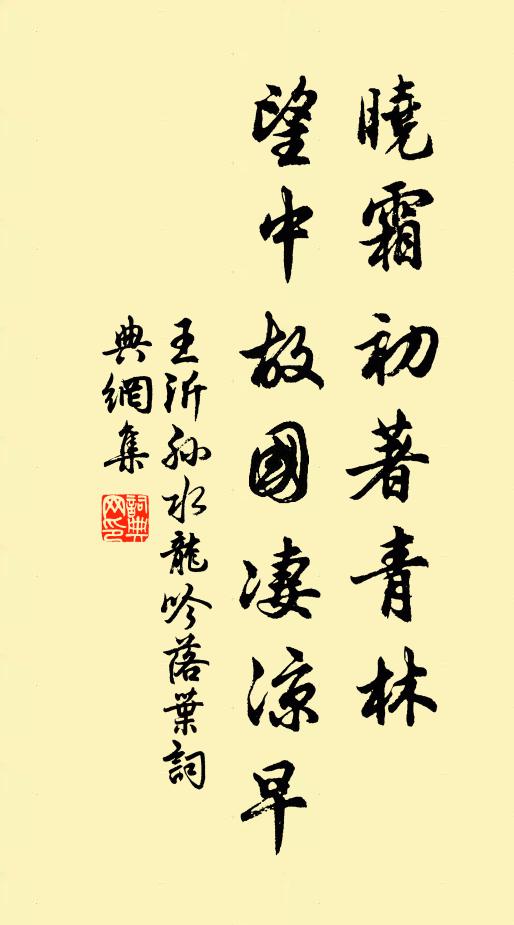 曉霜初著青林
望中故國淒涼早
王沂孫水龍吟落葉詞
典網集
詞典
网印